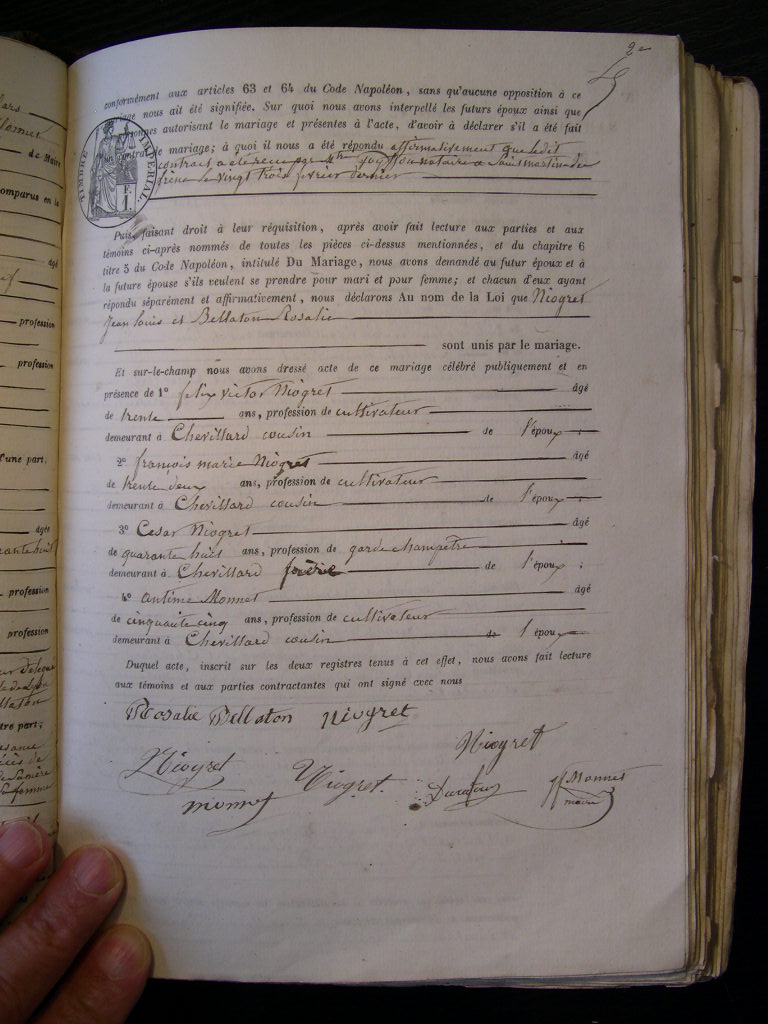 2e
conformément aux articles 63 et 64 du Code Napoléon, sans qu'aucune opposition à ce
nous ait été signifiée. Sur quoi nous avons interpellé les futurs époux ainsi que
autorisant le mariage et présentes à l'acte, d'avoir à déclarer s'il a été fait
de mariage; à quoi il nous a été répondu affirmativement que ledit
contrat a été reçu par notaire à Saint martin du
frene le vingt trois fevrier dernier
TIMBRE IMPÉRIAL
F. 1
Puis, faisant droit à leur réquisition, après avoir fait lecture aux parties et aux
témoins ci-après nommés de toutes les pièces ci-dessus mentionnées, et du chapitre 6
titre 5 du Code Napoléon, intitulé Du Mariage, nous avons demandé au futur époux et à
la future épouse s'ils veulent se prendre pour mari et pour femme; et chacun d'eux ayant
répondu séparément et affirmativement, nous déclarons Au nom de la Loi que Niogret
Jean Louis et Bellaton Rosalie
sont unis par le mariage.
Et sur-le-champ nous avons dressé acte de ce mariage célébré publiquement et en
présence de 1° felix victor Niogret âgé
de trente ans, profession de cultivateur
demeurant à Chevillard cousin de l'époux ;
2° françois marie Niogret âgé
de trente deux ans, profession de cultivateur
demeurant à Chevillard cousin de l'époux ;
3° Cesar Niogret âgé
de quarante huit ans, profession de garde champetre
demeurant à Chevillard frère de l'époux ;
4° antime Monnet âgé
de cinquante cinq ans, profession de cultivateur
demeurant à Chevillard cousin de l'époux
Duquel acte, inscrit sur les deux registres tenus à cet effet, nous avons fait lecture
aux témoins et aux parties contractantes qui ont signé avec nous
Rosalie Bellaton Niogret
Niogret
Niogret Niogret Monnet
monnet maire
de Maire
comparus en la
âgé
profession
profession
d'une part,
âgée
profession
profession
tre part;